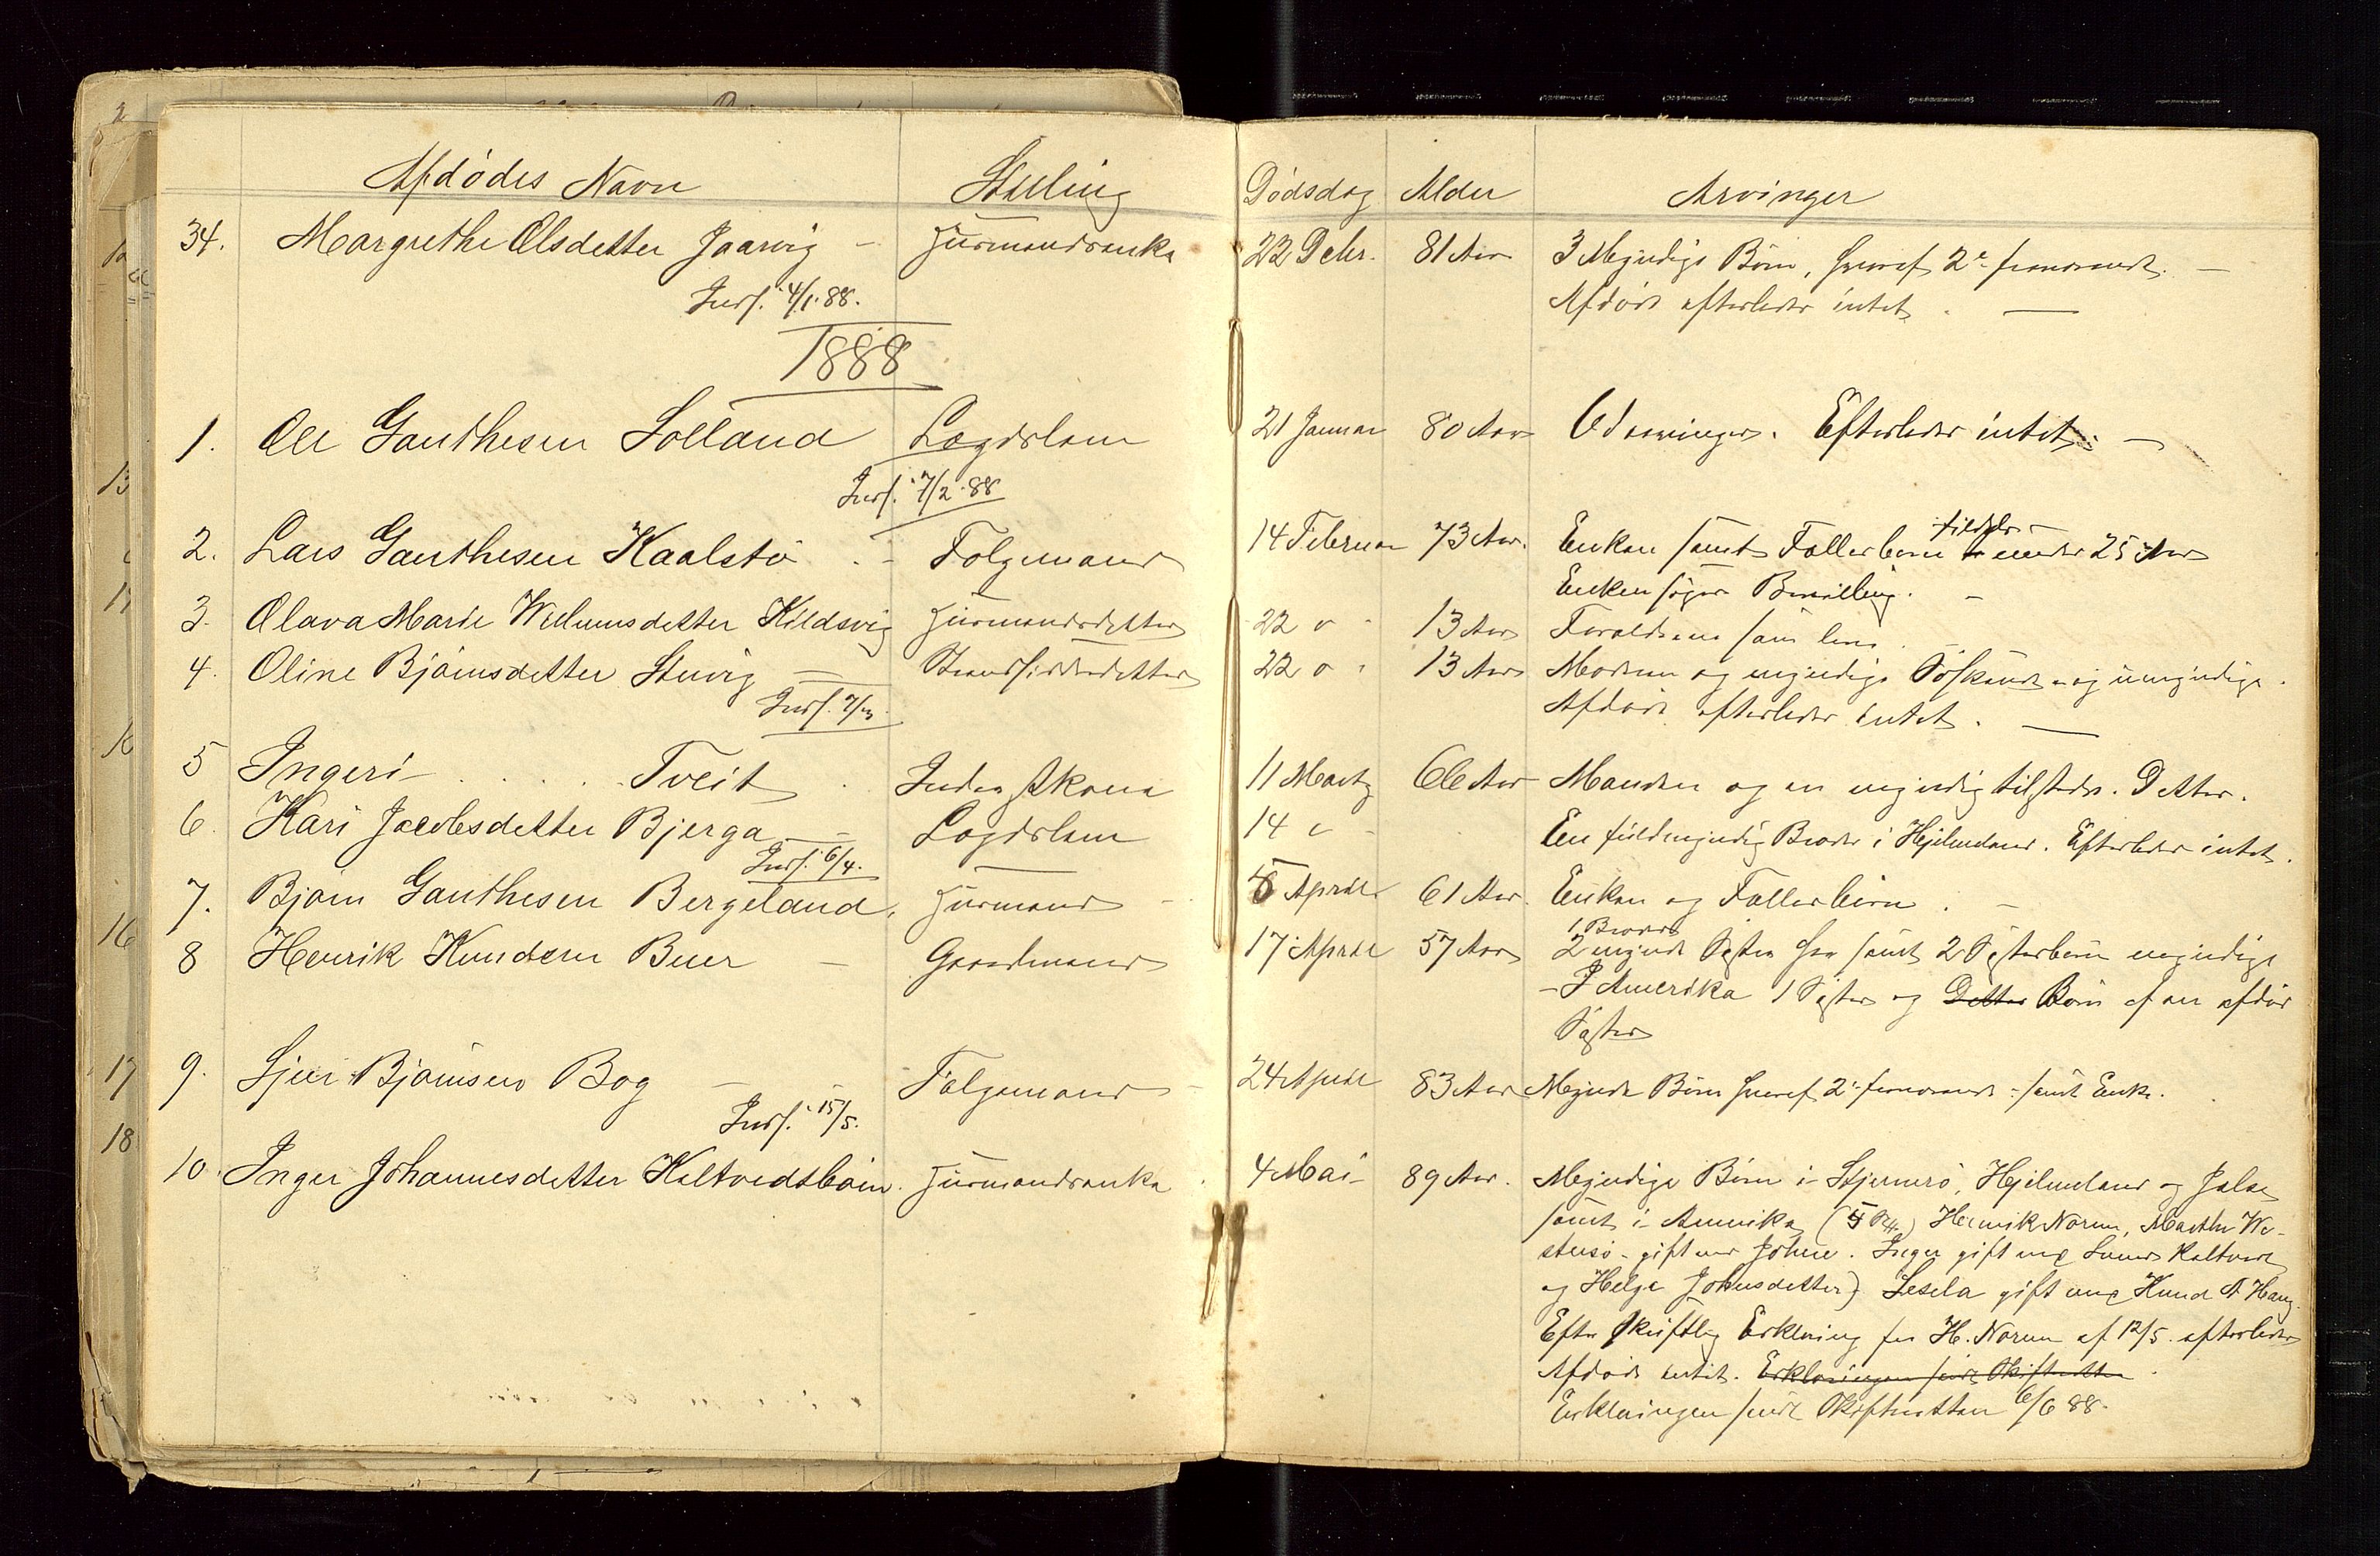 Afdødes Navn Stilling Dødsdag Alder Arvinger
34. Margrethe Olsdatter Jaarvig - Huusmandsenke 22 Debr. 81 Aar 3 Myndige Børn, hvoraf 2de fraværende. -
Inds. 4/1.88. Afdøde efterlader intet. -
1888
1. Ole Gauthesen Solland Lægdslem 21 Januar 80 Aar Udarvinger. Efterlader intet. -
Inds. 7/2.88
2. Lars Gauthesen Kaalstø - Folgemand 14 Februar 73 Aar. Enken samt Fællesbørn under 25 Aar
Enken søger Bevilling. -
3. Olava Marie Willumsdatter Kildsvig Huusmandsdatter 22 " 13 Aar Forældrene som leve.
4. Oline Bjørnsdatter Stuvig - Strandsidderdatter 22 " 13 Aar Moderen og myndige Søskende og umyndige.
Inds. 7/3. Afdøde efterlader intet. -
5 Ingeri . . . . Tveit . Inderstkone 11 Marts 66 Aar Manden og en myndig tilstede. Datter.
6. Kari Jacobsdatter Bjerga - Lægdslem 14 " - En fuldmyndig Broder i Hjelmeland. Efterlader intet.
Inds. 6/4.
7. Bjørn Gauthesen Bergeland, Huusmand 5 April 61 Aar. Enken og Fællesbørn. -
1 Broder
8 Henrik Knudsen Buer - Gaardmand 17 April 57 Aar 2 myndige Søstre her samt 2 Søsterbørn myndige
- I Amerika 1 Søster og Datter Børn af en afdød
Søster
9. Sjur Bjørnsen Bog - Folgemand 24 April 83 Aar Myndige Børn hvoraf 2de fraværende - samt Enke.
Inds. 15/5.
10. Inger Johannesdatter Kaltvedtbøin. Huusmandsenke 4 Mai 89 Aar. Myndige Børn i Stjernerø, Hjelmeland og Jelse
samt i Amerika Henrik Norum, Marthe We-
stersø - gift med Johne. Inger gift med Kaltvedt
og Helge Johnsdatter) Sesela gift med Knud
Efter skriftlig Erklæring fra H. Norum af 12/5. efterlader
Afdøde intet. Erklæringen sendt Skifteretten
Erklæringen sendt Skifteretten 6/6 88.